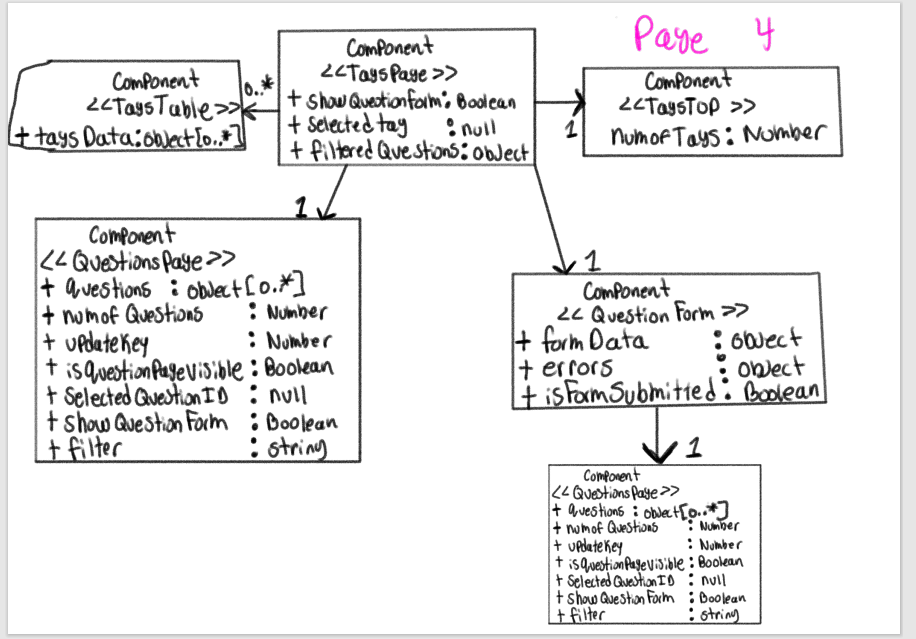 Page 4
Component
<<TagsPage>>
+ showQuestionForm: Boolean
+ Selected tag : null
+ filteredQuestions: object
0..*
Component
<<TagsTable>>
+ tagsData: object[0..*]
1
Component
<<TagsTop >>
numofTags: Number
1
Component
<<QuestionsPage>>
+ questions : object[0..*]
+ numof Questions : Number
+ updateKey : Number
+ isquestionPageVisible : Boolean
+ Selected Question ID : null
+ Show Question Form : Boolean
+ filter : string
1
Component
<< Question Form >>
+ formData : object
+ errors : object
+ isFormSubmitted : Boolean
1
Component
<<QuestionsPage>>
+ questions : object[0..*]
+ numof Questions : Number
+ updateKey : Number
+ isquestionPageVisible : Boolean
+ Selected Question ID : null
+ Show Question Form : Boolean
+ filter : string